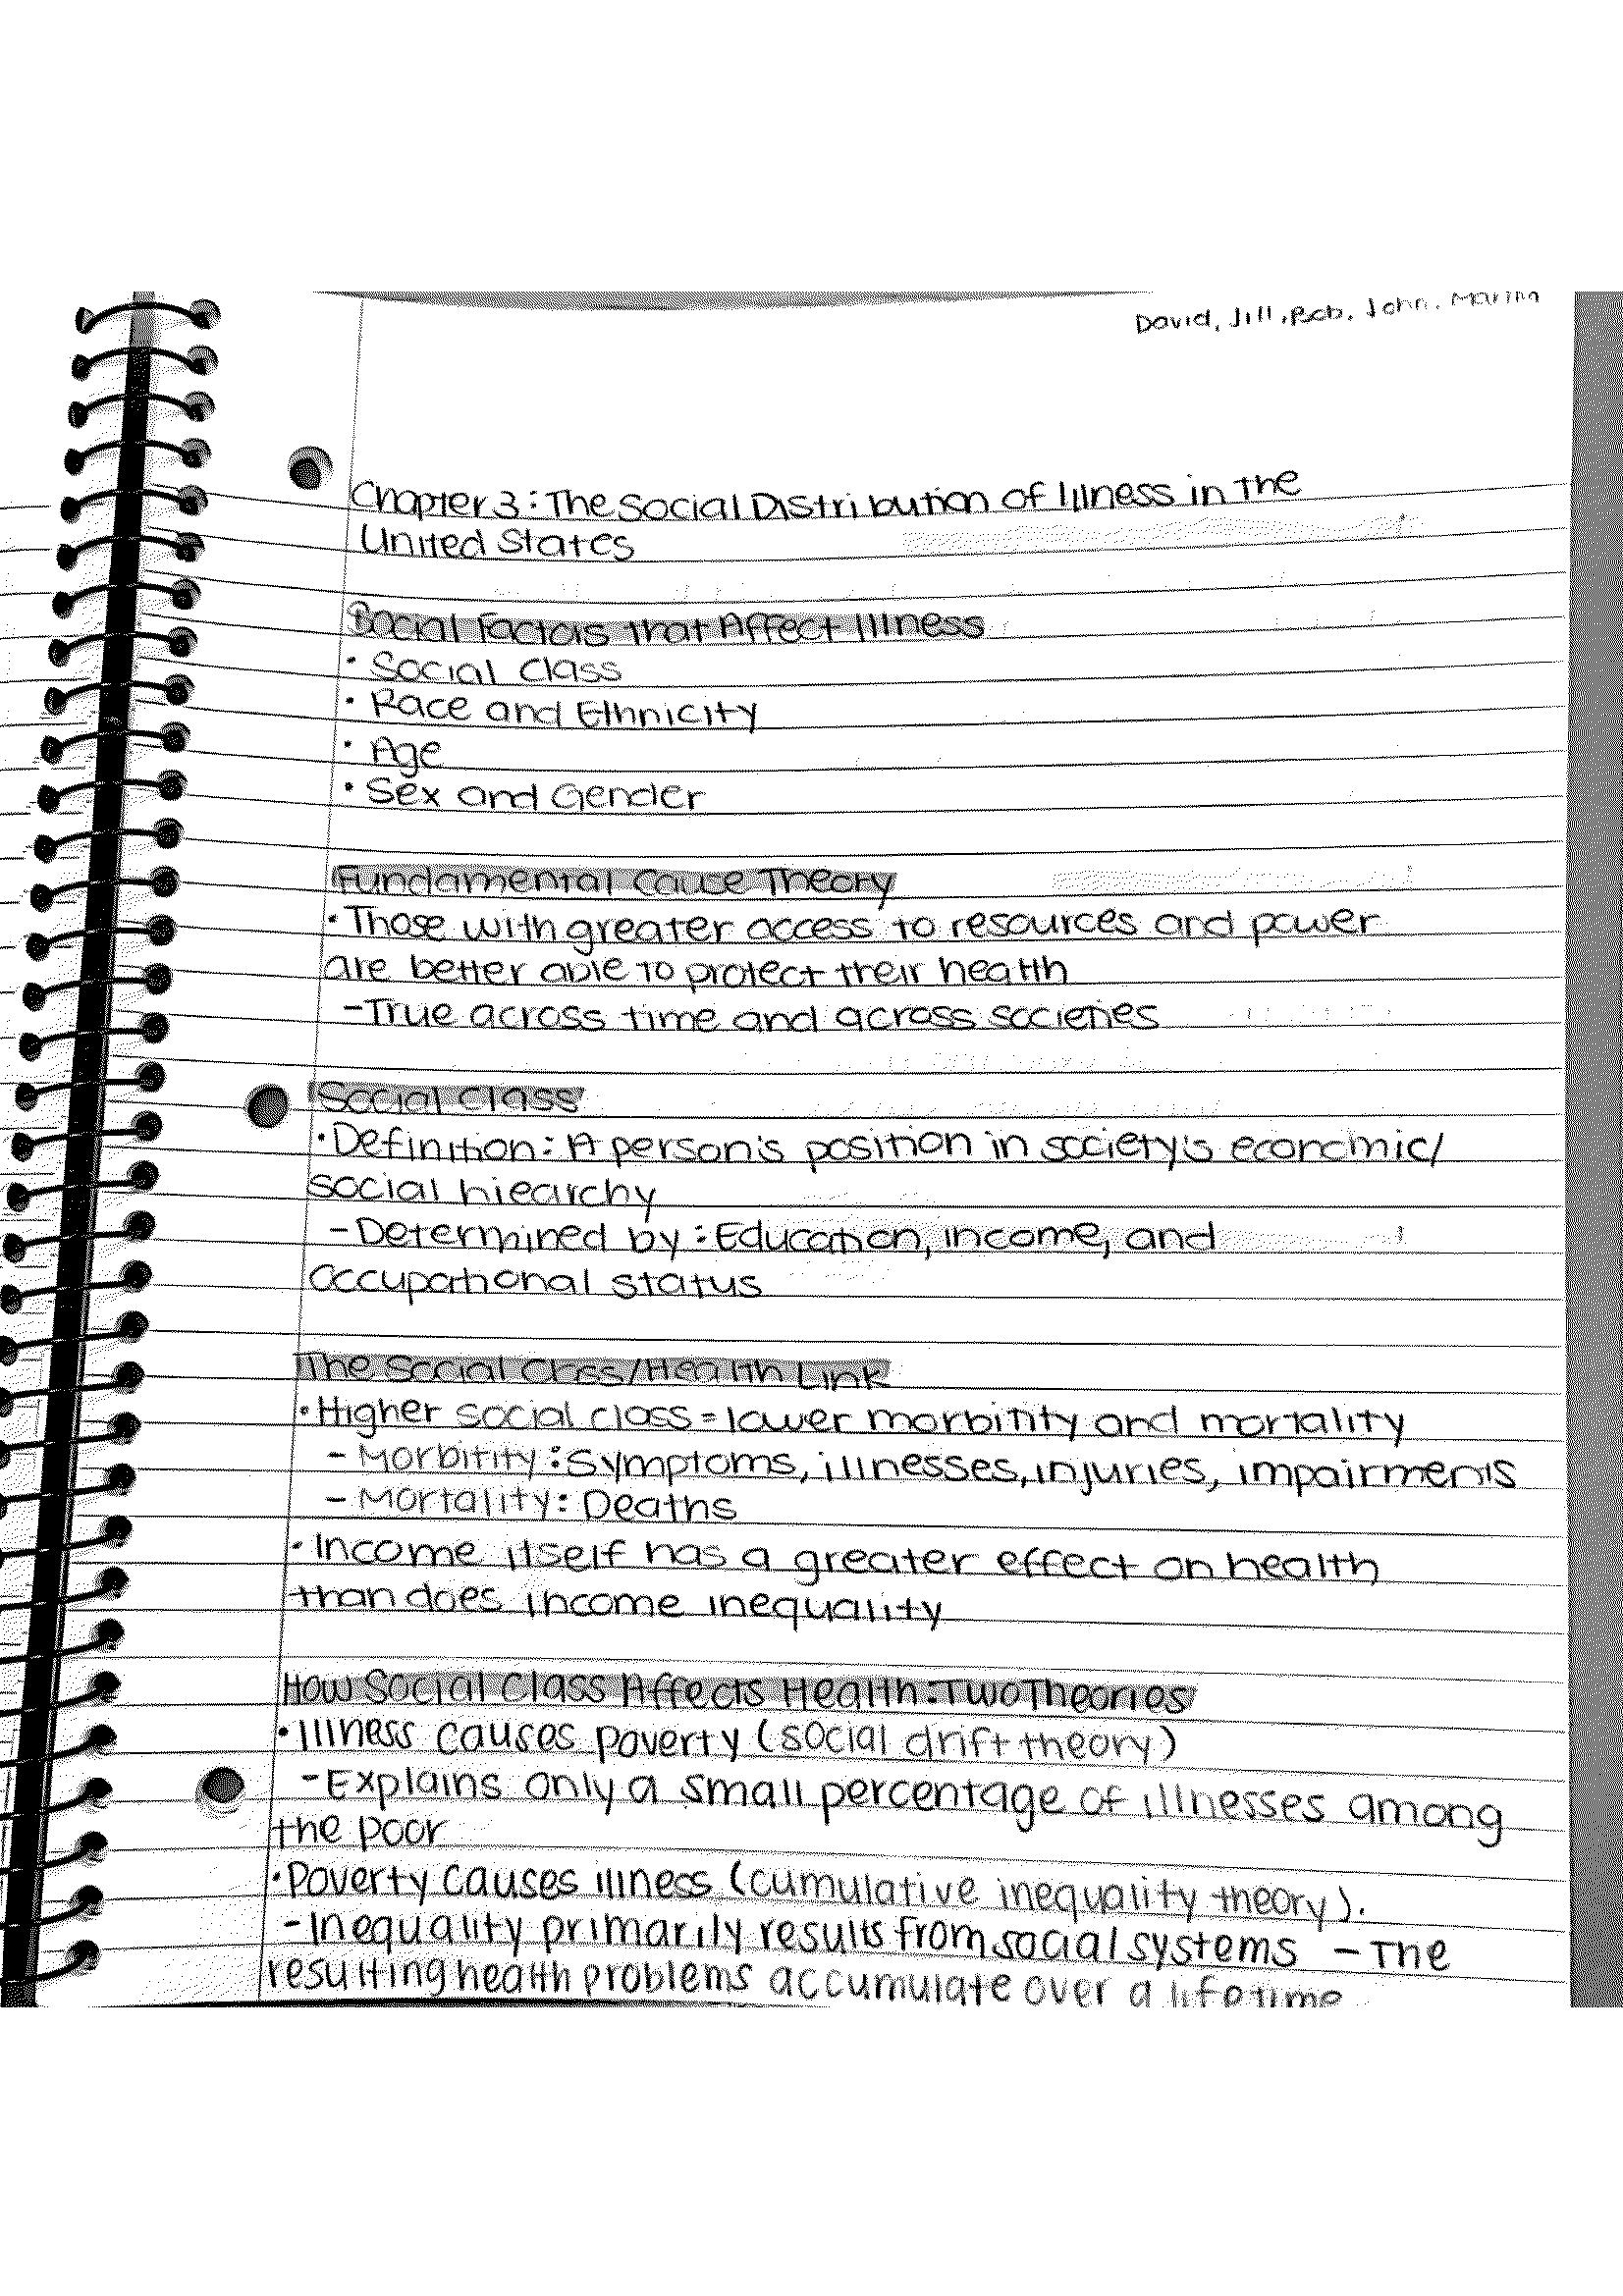 David, Jill, Rob, John, Martin
Chapter 3: The Social Distribution of Illness in the
United States
Social Factors that Affect Illness
• Social Class
• Race and Ethnicity
• Age
• Sex and Gender
Fundamental Cause Theory
• Those with greater access to resources and power
are better able to protect their health
- True across time and across societies
Social Class
• Definition: A person's position in society's economic/
social hiearchy
- Determined by: Education, income, and
occupational status
The Social Class/Health Link
• Higher social class = lower morbitity and mortality
- Morbitity: Symptoms, illnesses, injuries, impairments
- Mortality: Deaths
• Income itself has a greater effect on health
than does income inequality
How Social Class Affects Health: Two Theories
• Illness causes poverty (social drift theory)
- Explains only a small percentage of illnesses among
the poor
• Poverty causes illness (cumulative inequality theory).
- Inequality primarily results from social systems - The
resulting health problems accumulate over a lifetime